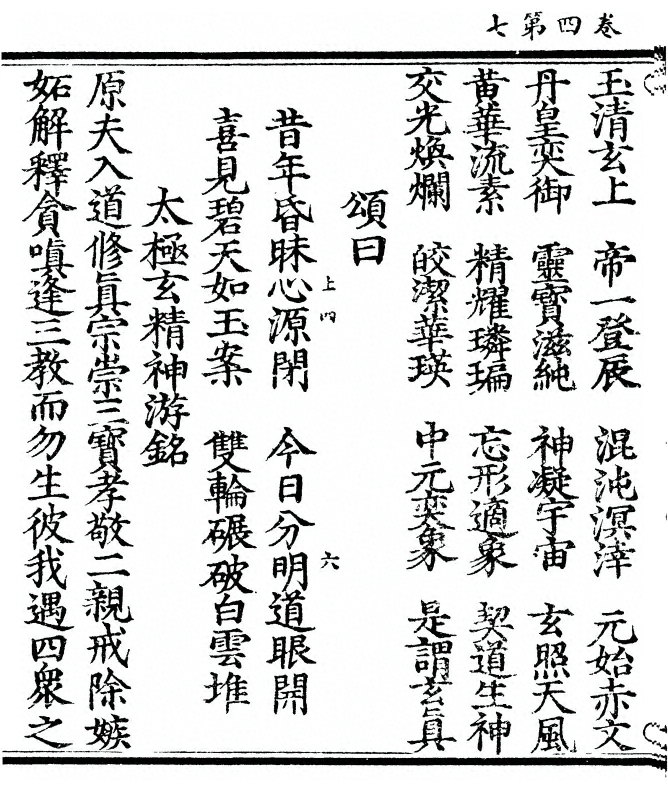 卷四第七
玉清玄上　帝一登辰　混沌溟涬　元始赤文
丹皇奕御　靈寶滋純　神凝宇宙　玄照天風
黃華流素　精耀璘㻞　忘形適象　契道生神
交光煥爛　皎潔華瑛　中元奕象　是謂玄眞
頌曰
昔年昏昧心源閉　今日分明道眼開
上四　六
喜見碧天如玉案　雙輪碾破白雲堆
太極玄精神游銘
原夫入道修眞宗崇三寶孝敬二親戒除嫉
妬解釋貪嗔逢三教而勿生彼我遇四衆之